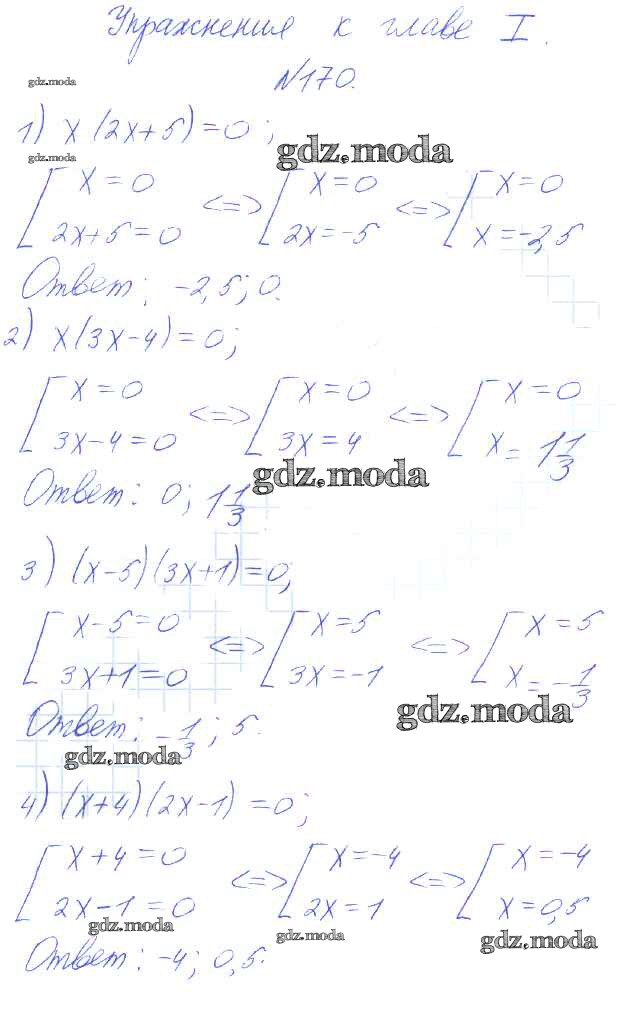 Упражнения к главе I.
gdz.moda
№170.
1) x(2x+5)=0;
gdz.moda
gdz.moda
[ x=0 <=> [ x=0 <=> [ x=0
2x+5=0 2x=-5 x=-2,5
Ответ: -2,5; 0.
2) x(3x-4)=0;
[ x=0 <=> [ x=0 <=> [ x=0
3x-4=0 3x=4 x=1 1/3
gdz.moda
Ответ: 0; 1 1/3
3) (x-5)(3x+1)=0;
[ x-5=0 <=> [ x=5 <=> [ x=5
3x+1=0 3x=-1 x=-1/3
gdz.moda
Ответ: -1/3; 5.
gdz.moda
4) (x+4)(2x-1)=0;
[ x+4=0 <=> [ x=-4 <=> [ x=-4
2x-1=0 2x=1 x=0,5
gdz.moda
gdz.moda
gdz.moda
Ответ: -4; 0,5.